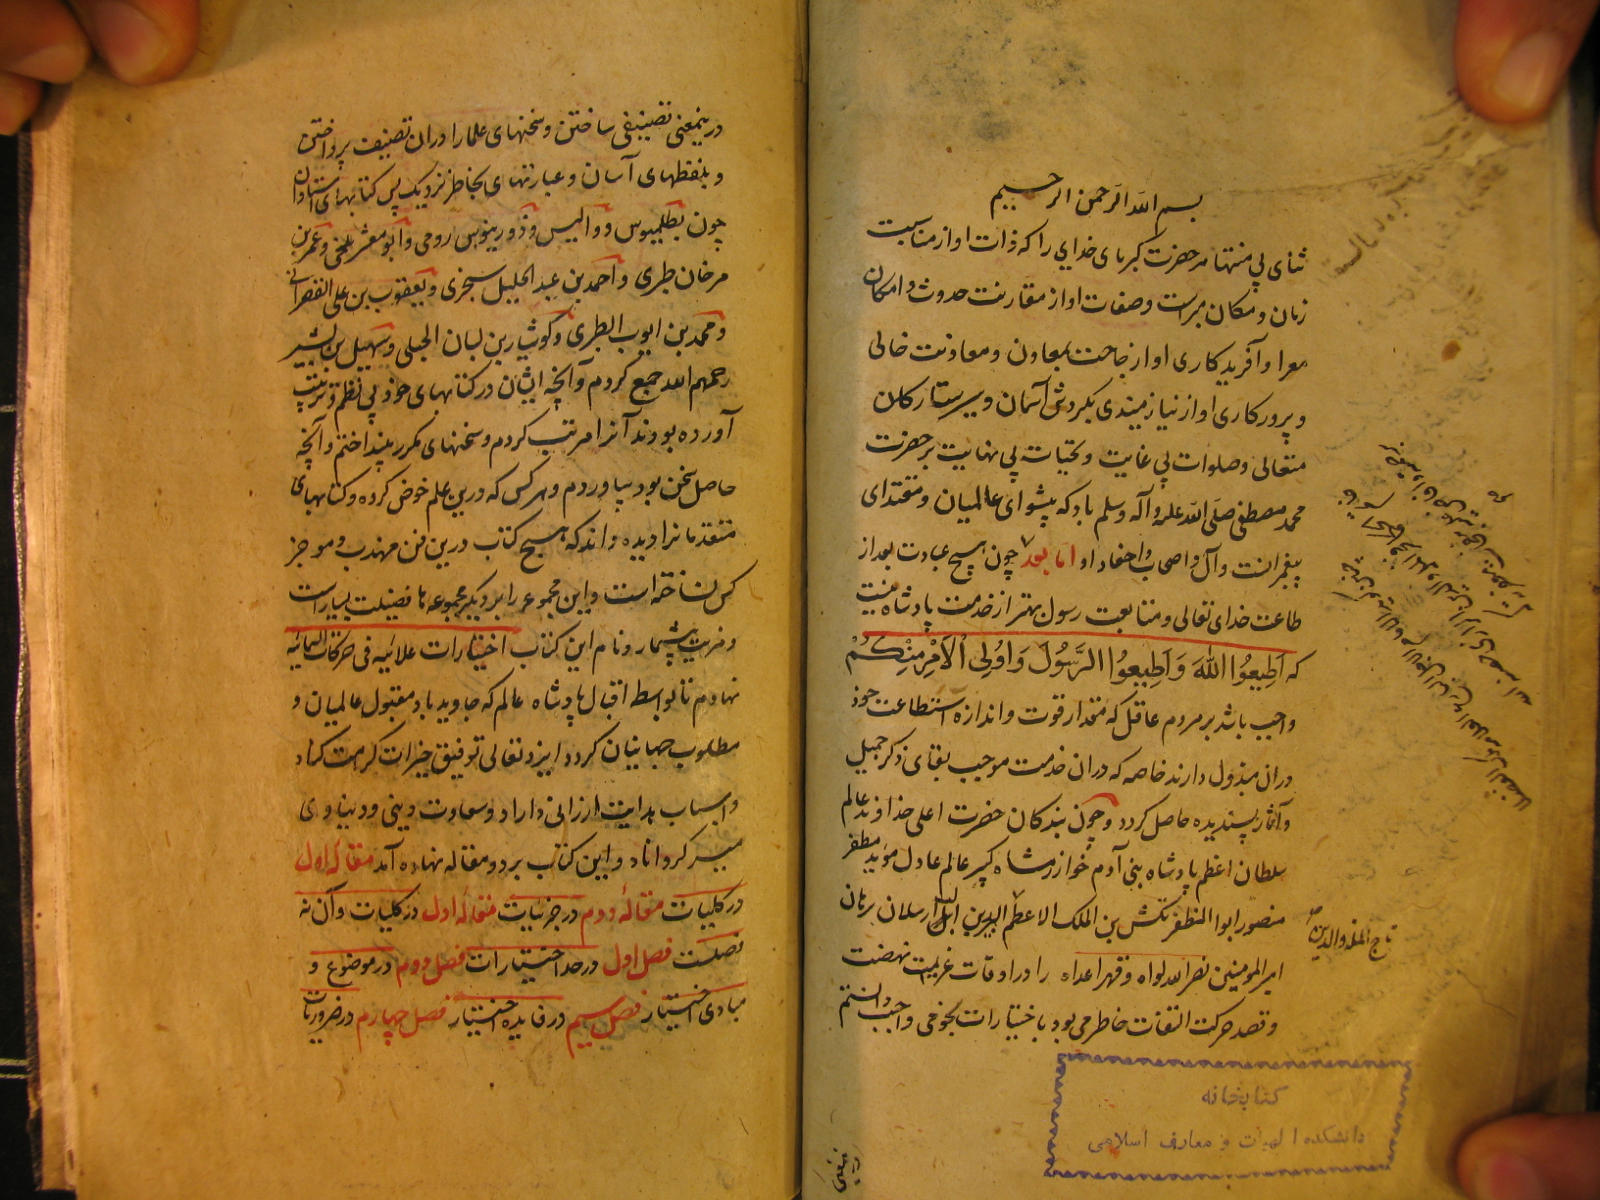 بسم الله الرحمن الرحيم
ثنای بی منتها مر حضرت کبریای خدایی را که ذات او از مناسبت
زمان و مکان مبراست وصفات او از مقارنت حدوث و امکان
معرا و آفریدکاری او از حاجت بمعاون و معاونت خالی
و پرورکاری او از نیازمندی بکردش آسمان و سیر ستارکان
متعالی وصلوات بی غایت و تحیات بی نهایت بر حضرت
محمد مصطفی صلی الله علیه وآله وسلم باد که پیشوای عالمیان و مقتدای
پیغمبرانست وآل و اصحاب و احفاد او اما بعد چون هیچ عبادت بعد از
طاعت خدای تعالی و متابعت رسول بهتر از خدمت پادشاه نیست
که اَطِیعُوا اللهَ وَاَطِیعُوا الرَّسُولَ وَاُولِی الْاَمْرِ مِنْکُمْ
واجب باشد بر مردم عاقل که مقدار قوت و اندازه استطاعت خود
دران مبذول دارند خاصه که دران خدمت موجب بقای ذکر جمیل
و آثار پسندیده حاصل کردد و چون بندکان حضرت اعلی خداوند عالم
سلطان اعظم پادشاه بنی آدم خوارزمشاه کبیر عالم عادل موید مظفر
منصور ابوالمظفر تکش بن الملک الاعظم ایل ارسلان برهان
تاج الملة والدین
امیر المومنین نصر الله لواه و قهر اعداه را در اوقات عزیمت نهضت
و قصد حرکت التفات خاطر می بود باختیارات نجومی واجب دانستم
کتابخانه
دانشکده الهیات و معارف اسلامی
درینمعنی تصنیفی ساختن و سخنهای علما را دران تصنیف پرداختن
و بلفظهای آسان و عبارتهای بخاطر نزدیک پس کتابهای استادان
چون بطلمیوس و والیس و ذورینوس رومی و ابو معشر بلخی و عمر بن
فرخان طبری و احمد بن عبد الجلیل سجزی و یعقوب بن علی القصرانی
و محمد بن ایوب الطبری و کوشیار بن لبان الجیلی و سهیل بن بشر
رحمهم الله جمع کردم و آنچه ایشان در کتابهای خود بی نظم و ترتیب
آورده بودند آنرا مرتب کردم و سخنهای مکرر بینداختم و آنچه
حاصل سخن بود بیاوردم و هر کس که درین علم خوض کرده و کتابهای
متقدمانرا دیده داند که هیچ کتاب درین فن مهذب و موجز
کس نساخته است و این مجموع را بر دیکر مجموعه ها فضیلت بسیارست
و مزیت بیشمار و نام این کتاب اختیارات علائیه فی حرکات السمائیه
نهادم تا بواسطه اقبال پادشاه عالم که جاوید باد مقبول عالمیان و
مطلوب جهانیان کردد ایزد تعالی توفیق خیرات کرامت کناد
و اسباب هدایت ارزانی داراد و سعادت دینی و دنیاوی
میسر کرداناد و این کتاب بر دو مقاله نهاده آمد مقاله اول
در کلیات مقاله دوم در جزئیات مقاله اول در کلیات و آن نه
فصلست فصل اول در حد اختیارات فصل دوم در موضوع و
مبادی اختیار فصل سیم در فایده اختیار فصل چهارم در ضرورتات